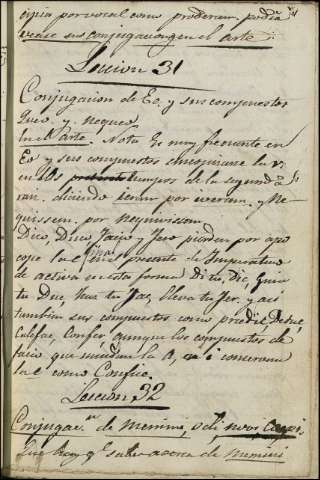 cipia por vocal como proderam, podra
verse sus conjugaciones en el arte.
Leccion 31
Conjugacion de Eo, y sus compuestos
Queo, y, nequeo
En el Arte. Nota 1º es muy frequente en
Eo y sus compuestos sincoparse la v,
en los tiempos de la segunda
rais. diciendo ieram por iveram, y Ne-
quissem. por nequivissem.
Dico, Duco, Facio y Fero pierden por apo
cope la e final presente de Imperativo
de activa en esta forma dico, Dic, Guia
tu Duc, haz tu Fac, lleva tu Fer. y asi
tambien sus compuestos como predic, Deduc,
Calefac, Confer, aunque los compuestos de
facio que mudan la A, en i conservan
la e como Confice.
Leccion 32
Conjugac.on de Memini, Odi, novi, Coepi,
Que hay q.e saber acerca de Memini